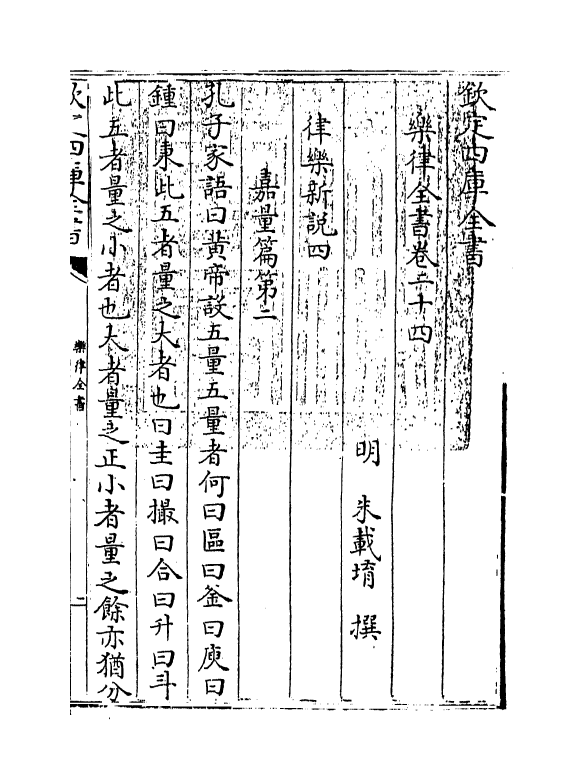 欽定四庫全書
樂律全書卷二十四
明 朱載堉 撰
律樂新説四
嘉量篇第二
孔子家語曰黄帝設五量五量者何曰區曰釜曰庾曰
鍾曰秉此五者量之大者也曰圭曰撮曰合曰升曰斗
此五者量之小者也大者量之正小者量之餘亦猶分
欽定四庫全書
樂律全書
二